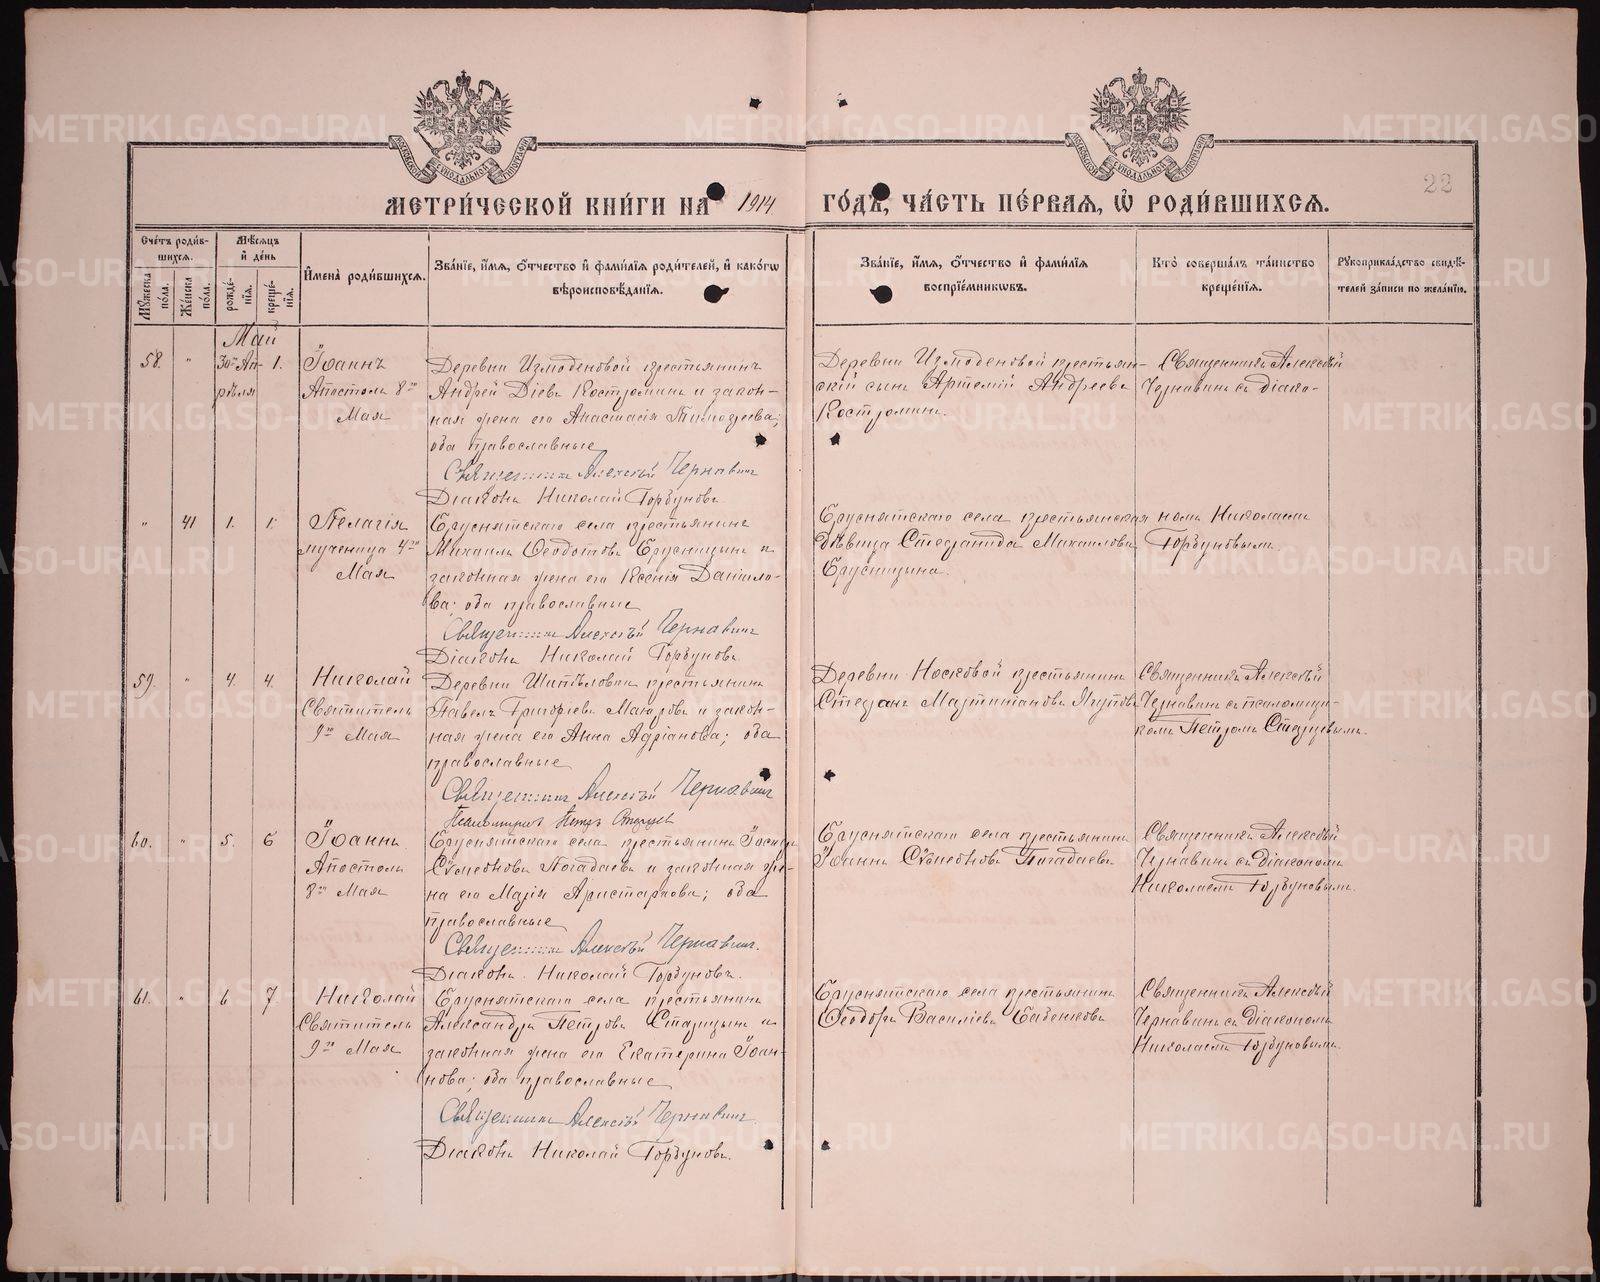 МЕТРИ́ЧЕСКОЙ КНИ́ГИ НА 1914 ГО́ДЪ, ЧА́СТЬ ПЕ́РВАЯ, Ѡ҆ РОДИ́ВШИХСЯ.
22
МОСКОВСКОЙ СѴНОДАЛЬНОЙ ТИПОГРАФІИ
МОСКОВСКОЙ СѴНОДАЛЬНОЙ ТИПОГРАФІИ
Сче́тъ роди́в-
шихся.
Мꙋ́жеска по́ла.
Же́нска по́ла.
Мѣ́сяцъ
и҆ де́нь
рожде́-
нїя.
креще́-
нїя.
И҆мена̀ роди́вшихся.
Зва́нїе, и҆́мя, ѻ҆́тчество и҆ фами́лїя роди́телей, и҆ како́гѡ
вѣроисповѣ́данїя.
Зва́нїе, и҆́мя, ѻ҆́тчество и҆ фами́лїя
воспрїе́мникѡвъ.
Кто̀ соверша́лъ та́инство
креще́нїя.
Рꙋкоприкла́дство свидѣ́-
телей за́писи по жела́нїю.
Май
58. " 30го Ап- 1.
рѣля
Іоаннъ
Апостолъ 8го
Мая
Деревни Измоденовой крестьянинъ
Андрей Діевъ Костроминъ и закон-
ная жена его Анастасія Тимоѳеева;
оба православные
Священникъ Алексѣй Чернавинъ
Діаконъ Николай Горбуновъ.
Деревни Измоденовой крестьян-
скій сынъ Артемій Андреевъ
Костроминъ.
Священникъ Алексѣй
Чернавинъ съ діако-
" 41 1. 1.
Пелагія
мученица 4го
Мая
Бруснятскаго села крестьянинъ
Михаилъ Ѳеодотовъ Брусницынъ и
законная жена его Ксенія Даніило-
ва; оба православные
Священникъ Алексѣй Чернавинъ
Діаконъ Николай Горбуновъ.
Бруснятскаго села крестьянская
дѣвица Стефанида Михаилова
Брусницына.
номъ Николаемъ
Горбуновымъ.
59. " 4. 4.
Николай
Святитель
9го Мая
Деревни Шипѣловки крестьянинъ
Павелъ Григорьевъ Макаровъ и закон-
ная жена его Анна Адріанова; оба
православные
Священникъ Алексѣй Чернавинъ
Псаломщикъ Петръ Старцевъ
Деревни Носковой крестьянинъ
Стефанъ Мартиніановъ Ягуповъ
Священникъ Алексѣй
Чернавинъ съ псаломщи-
комъ Петромъ Старцевымъ.
60. " 5. 6
Іоаннъ
Апостолъ
8го Мая
Бруснятскаго села крестьянинъ Іосифъ
Сѵмеоновъ Погадаевъ и законная же-
на его Марія Аристархова; оба
православные
Священникъ Алексѣй Чернавинъ.
Діаконъ Николай Горбуновъ.
Бруснятскаго села крестьянинъ
Іоаннъ Сѵмеоновъ Погадаевъ
Священникъ Алексѣй
Чернавинъ съ Діакономъ
Николаемъ Горбуновымъ.
61. " 6 7.
Николай
Святитель
9го Мая
Бруснятскаго села крестьянинъ
Александръ Петровъ Старицынъ и
законная жена его Екатерина Іоан-
нова; оба православные
Священникъ Алексѣй Чернавинъ
Діаконъ Николай Горбуновъ.
Бруснятскаго села крестьянинъ
Ѳеодоръ Василіевъ Бабенковъ
Священникъ Алексѣй
Чернавинъ съ Діакономъ
Николаемъ Горбуновымъ.
METRIKI.GASO-URAL.RU